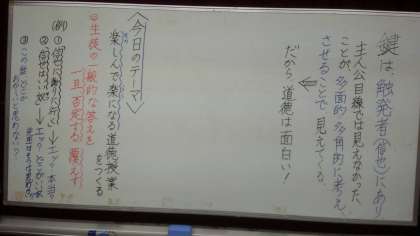 鍵は、触発者(省也)にあり
主人公目線では見えなかった
ことが、多面的・多角的に考え
させることで見えてくる。
だから道徳は面白い!
〈今日のテーマ〉
楽しんで楽になる道徳授業
をつくる
生徒の一般的な答えを
一旦否定する 覆えす
(例)
→エッ 本当?
→エッ どこがいい
③この話
おかしいと思わない?